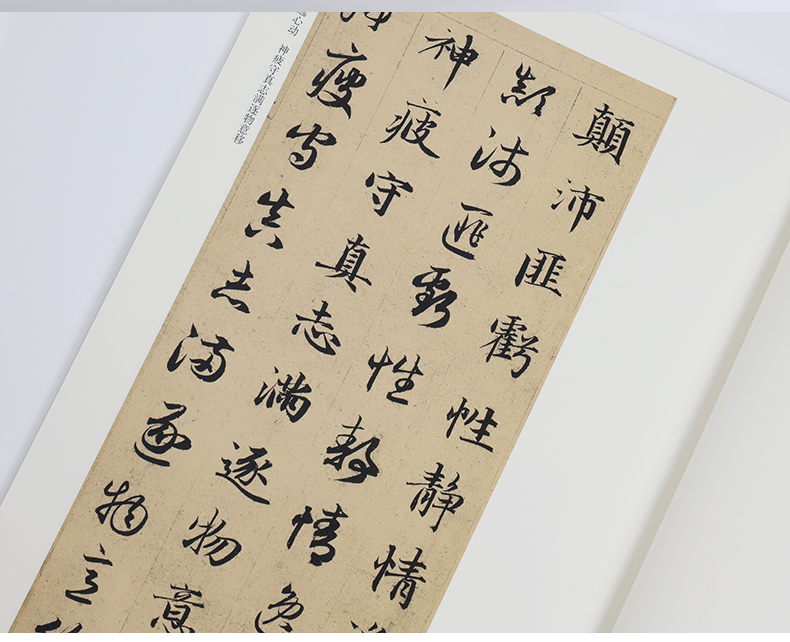 顛沛匪虧性靜情
顛沛匪虧性靜情逸
神疲守真志滿逐物意
疲守真志滿逐物意
心动　神疲守真志满逐物意移